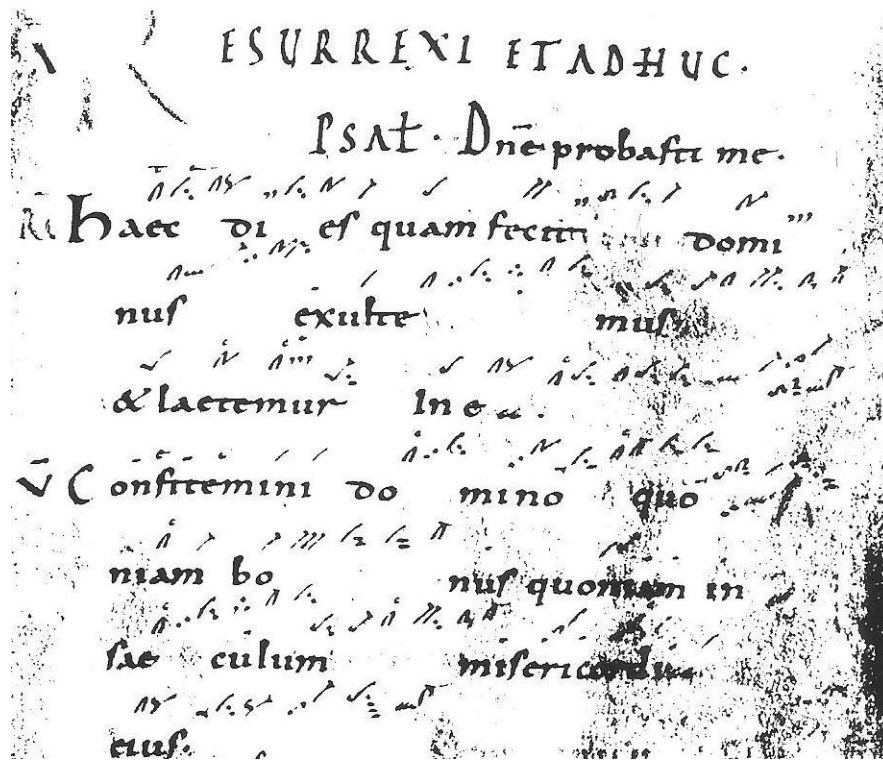 RESURREXI ET ADHUC.
PSAł. Dn̄e probasti me.
R̄ Haec di es quam fecit domi
nus exulte mus
& laetemur In e a.
V̄ Confitemini do mino quo
niam bo nus quoniam in
sae culum misericordia
eius.